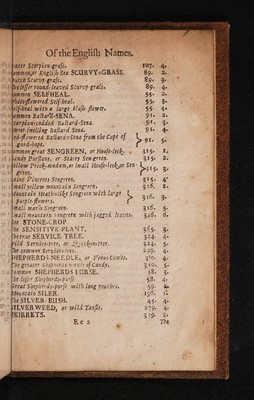 Of the English Names.
eater Scorpion-grass. 107. 4.
ommon, or English Sea SCURVY-GRASS. 89. 2.
utch Scurvy-grass. 89. 3.
he lesser round-leaved Scurvy-grass. 89. 4.
ommon SELFHEAL. 55. 2.
hite-flowered Self-heal. 55. 3.
elf-heal with a large blue flower. 55. 4.
ommon Bastard-SENA. 91. 2.
corpion-codded Bastard-Sena. 91. 3.
weet smelling Bastard Sena. 91. 4.
ed-flowered Bastard-Sena from the Cape of
good-hope. 91. 5.
ommon great SENGREEN, or House-leek. 315. 1.
andy Pursiane, or Starry Sen-green. 315. 2.
ellow Prick-madam, or small House-leek, or Sen-
green. 315. 3.
aint Pincents Sengreen. 315. 4.
mall yellow mountain Sengreen. 316. 2.
Mountain Heathlike Sengreen with large
purple flowers. 316. 3.
mall marsh Sengreen. 316. 5.
mall mountain sengreen with jagged leaves. 316. 6.
he STONE-CROP
he SENSITIVE-PLANT. 365. 3.
he true SERVICE TREE. 324. 4.
ild Service-tree, or Quicken-tree. 324. 5.
he common Service-tree. 229. 4.
SHEPHERDS-NEEDLE, or Venus Combe. 310. 4.
The greater Shepherds needle of Candy. 310. 5.
ommon SHEPHERDS PURSE. 58. 3.
he lesser Shepherds-purse 58. 4.
Great Shepherds-purse with long pouches. 59. 2.
Mountain SILER. 196. 1.
The SILVER-BUSH. 45. 4.
SILVERWEED, or wild Tansie. 279. 4.
SKIRRETS. 319. 2.
E e 2 The